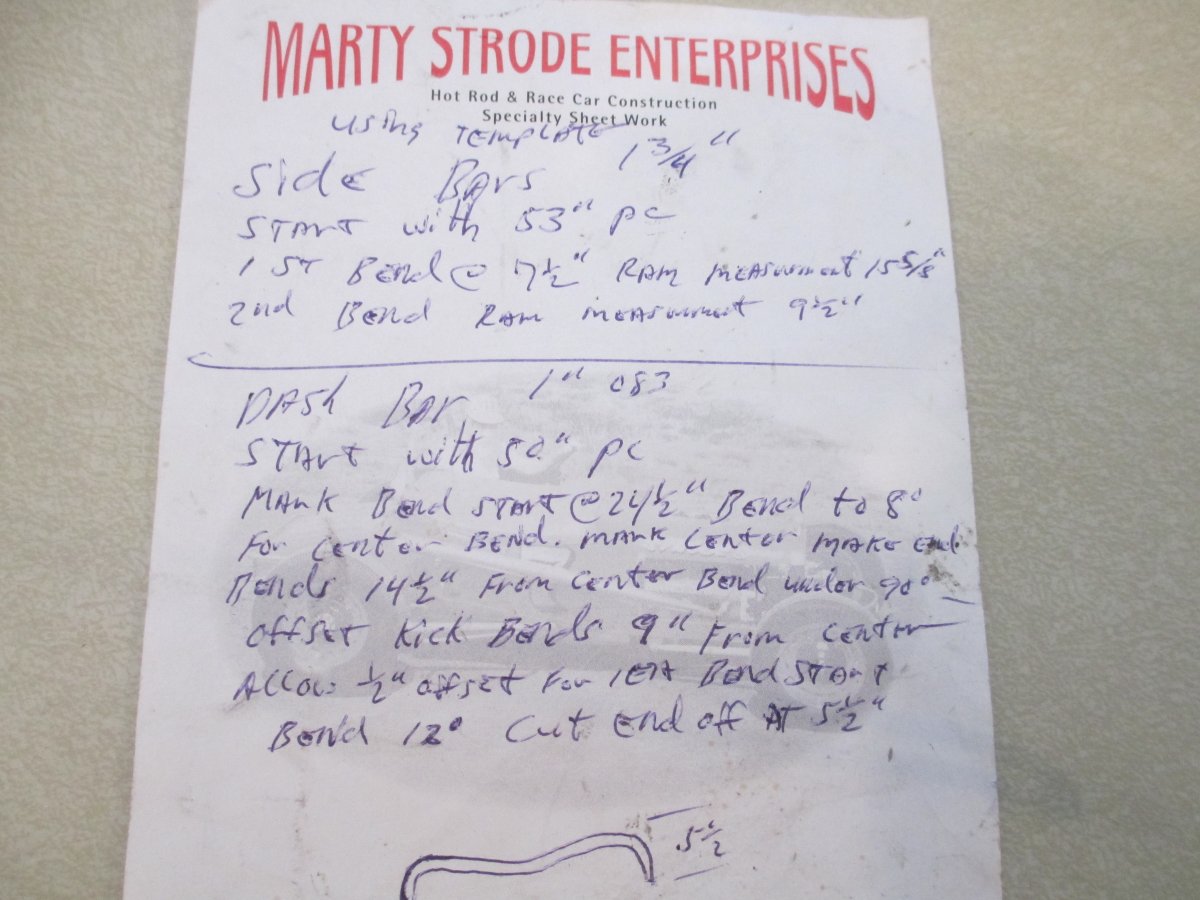 MARTY STRODE ENTERPRISES
Hot Rod & Race Car Construction
Specialty Sheet Work
Using TEMPLATE
Side BArs 1 3/4"
START with 53" pc
1 ST Bend @ 7 1/2" RAM MEASurment 15 5/8"
2nd Bend RAM MEASurment 9 1/2"
DASh BAr 1" 083
START with 50" pc
MArk Bend START @ 24 1/2" Bend to 8°
For Center BEND. MArk Center MAKE end
Bends 14 1/2" From center Bend under 90°
Offset Kick Bends 9" From Center
Allow 1/2" offset For Bend START
Bend 12° Cut End off AT 5 1/2"
5 1/2